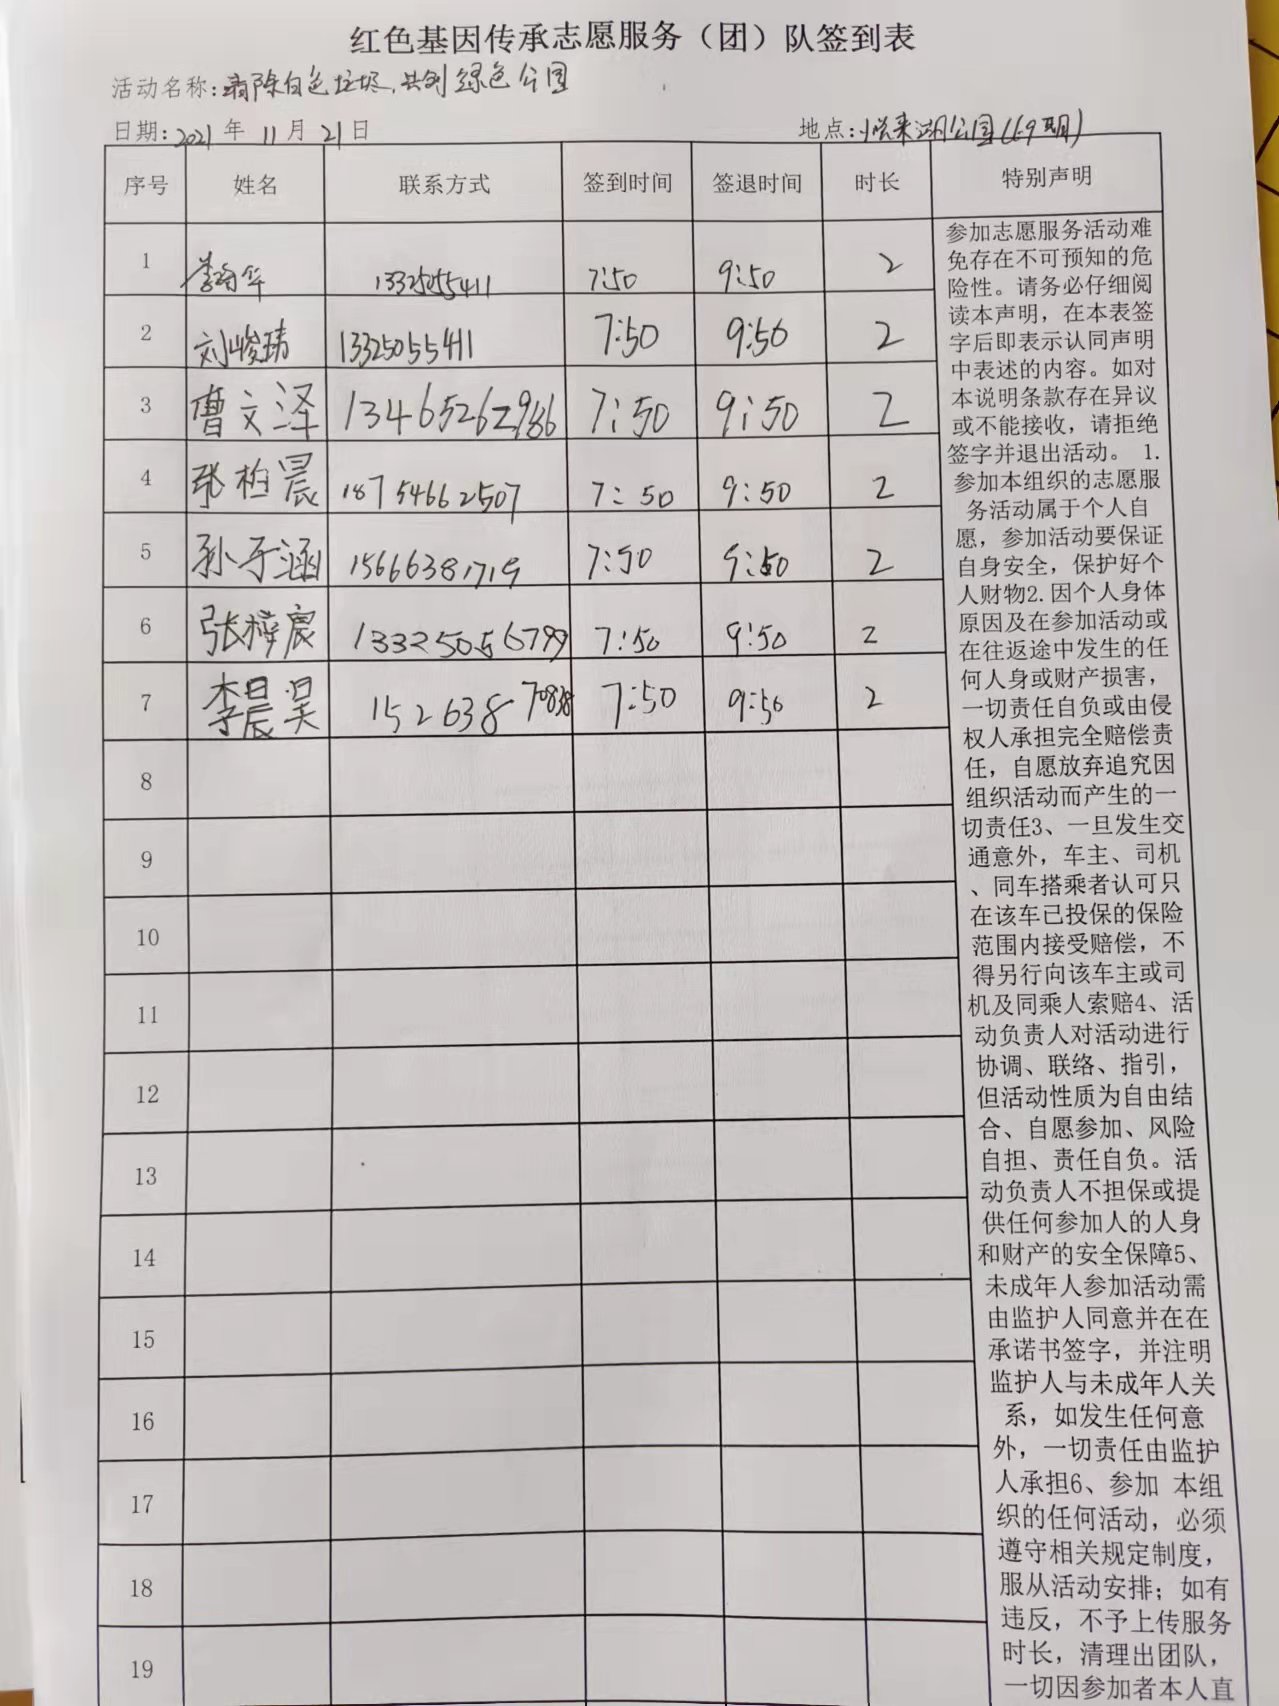 红色基因传承志愿服务（团）队签到表
活动名称:清除白色垃圾,共创绿色公园
日期:2021年 11月 21日 地点:悦来湖公园(69期)
序号 姓名 联系方式 签到时间 签退时间 时长 特别声明
1 13325055411 7:50 9:50 2
2 刘峻玮 13325055411 7:50 9:50 2
3 曹文泽 13465262986 7:50 9:50 2
4 张柏晨 18754662507 7:50 9:50 2
5 孙子涵 15666381719 7:50 9:50 2
6 张梓宸 13325056799 7:50 9:50 2
7 李晨昊 15263870838 7:50 9:50 2
8
9
10
11
12
13
14
15
16
17
18
19
参加志愿服务活动难
免存在不可预知的危
险性。请务必仔细阅
读本声明，在本表签
字后即表示认同声明
中表述的内容。如对
本说明条款存在异议
或不能接收，请拒绝
签字并退出活动。 1.
参加本组织的志愿服
务活动属于个人自
愿，参加活动要保证
自身安全，保护好个
人财物2.因个人身体
原因及在参加活动或
在往返途中发生的任
何人身或财产损害，
一切责任自负或由侵
权人承担完全赔偿责
任，自愿放弃追究因
组织活动而产生的一
切责任3、一旦发生交
通意外，车主、司机
、同车搭乘者认可只
在该车已投保的保险
范围内接受赔偿，不
得另行向该车主或司
机及同乘人索赔4、活
动负责人对活动进行
协调、联络、指引，
但活动性质为自由结
合、自愿参加、风险
自担、责任自负。活
动负责人不担保或提
供任何参加人的人身
和财产的安全保障5、
未成年人参加活动需
由监护人同意并在在
承诺书签字，并注明
监护人与未成年人关
系，如发生任何意
外，一切责任由监护
人承担6、参加 本组
织的任何活动，必须
遵守相关规定制度，
服从活动安排；如有
违反，不予上传服务
时长，清理出团队，
一切因参加者本人直